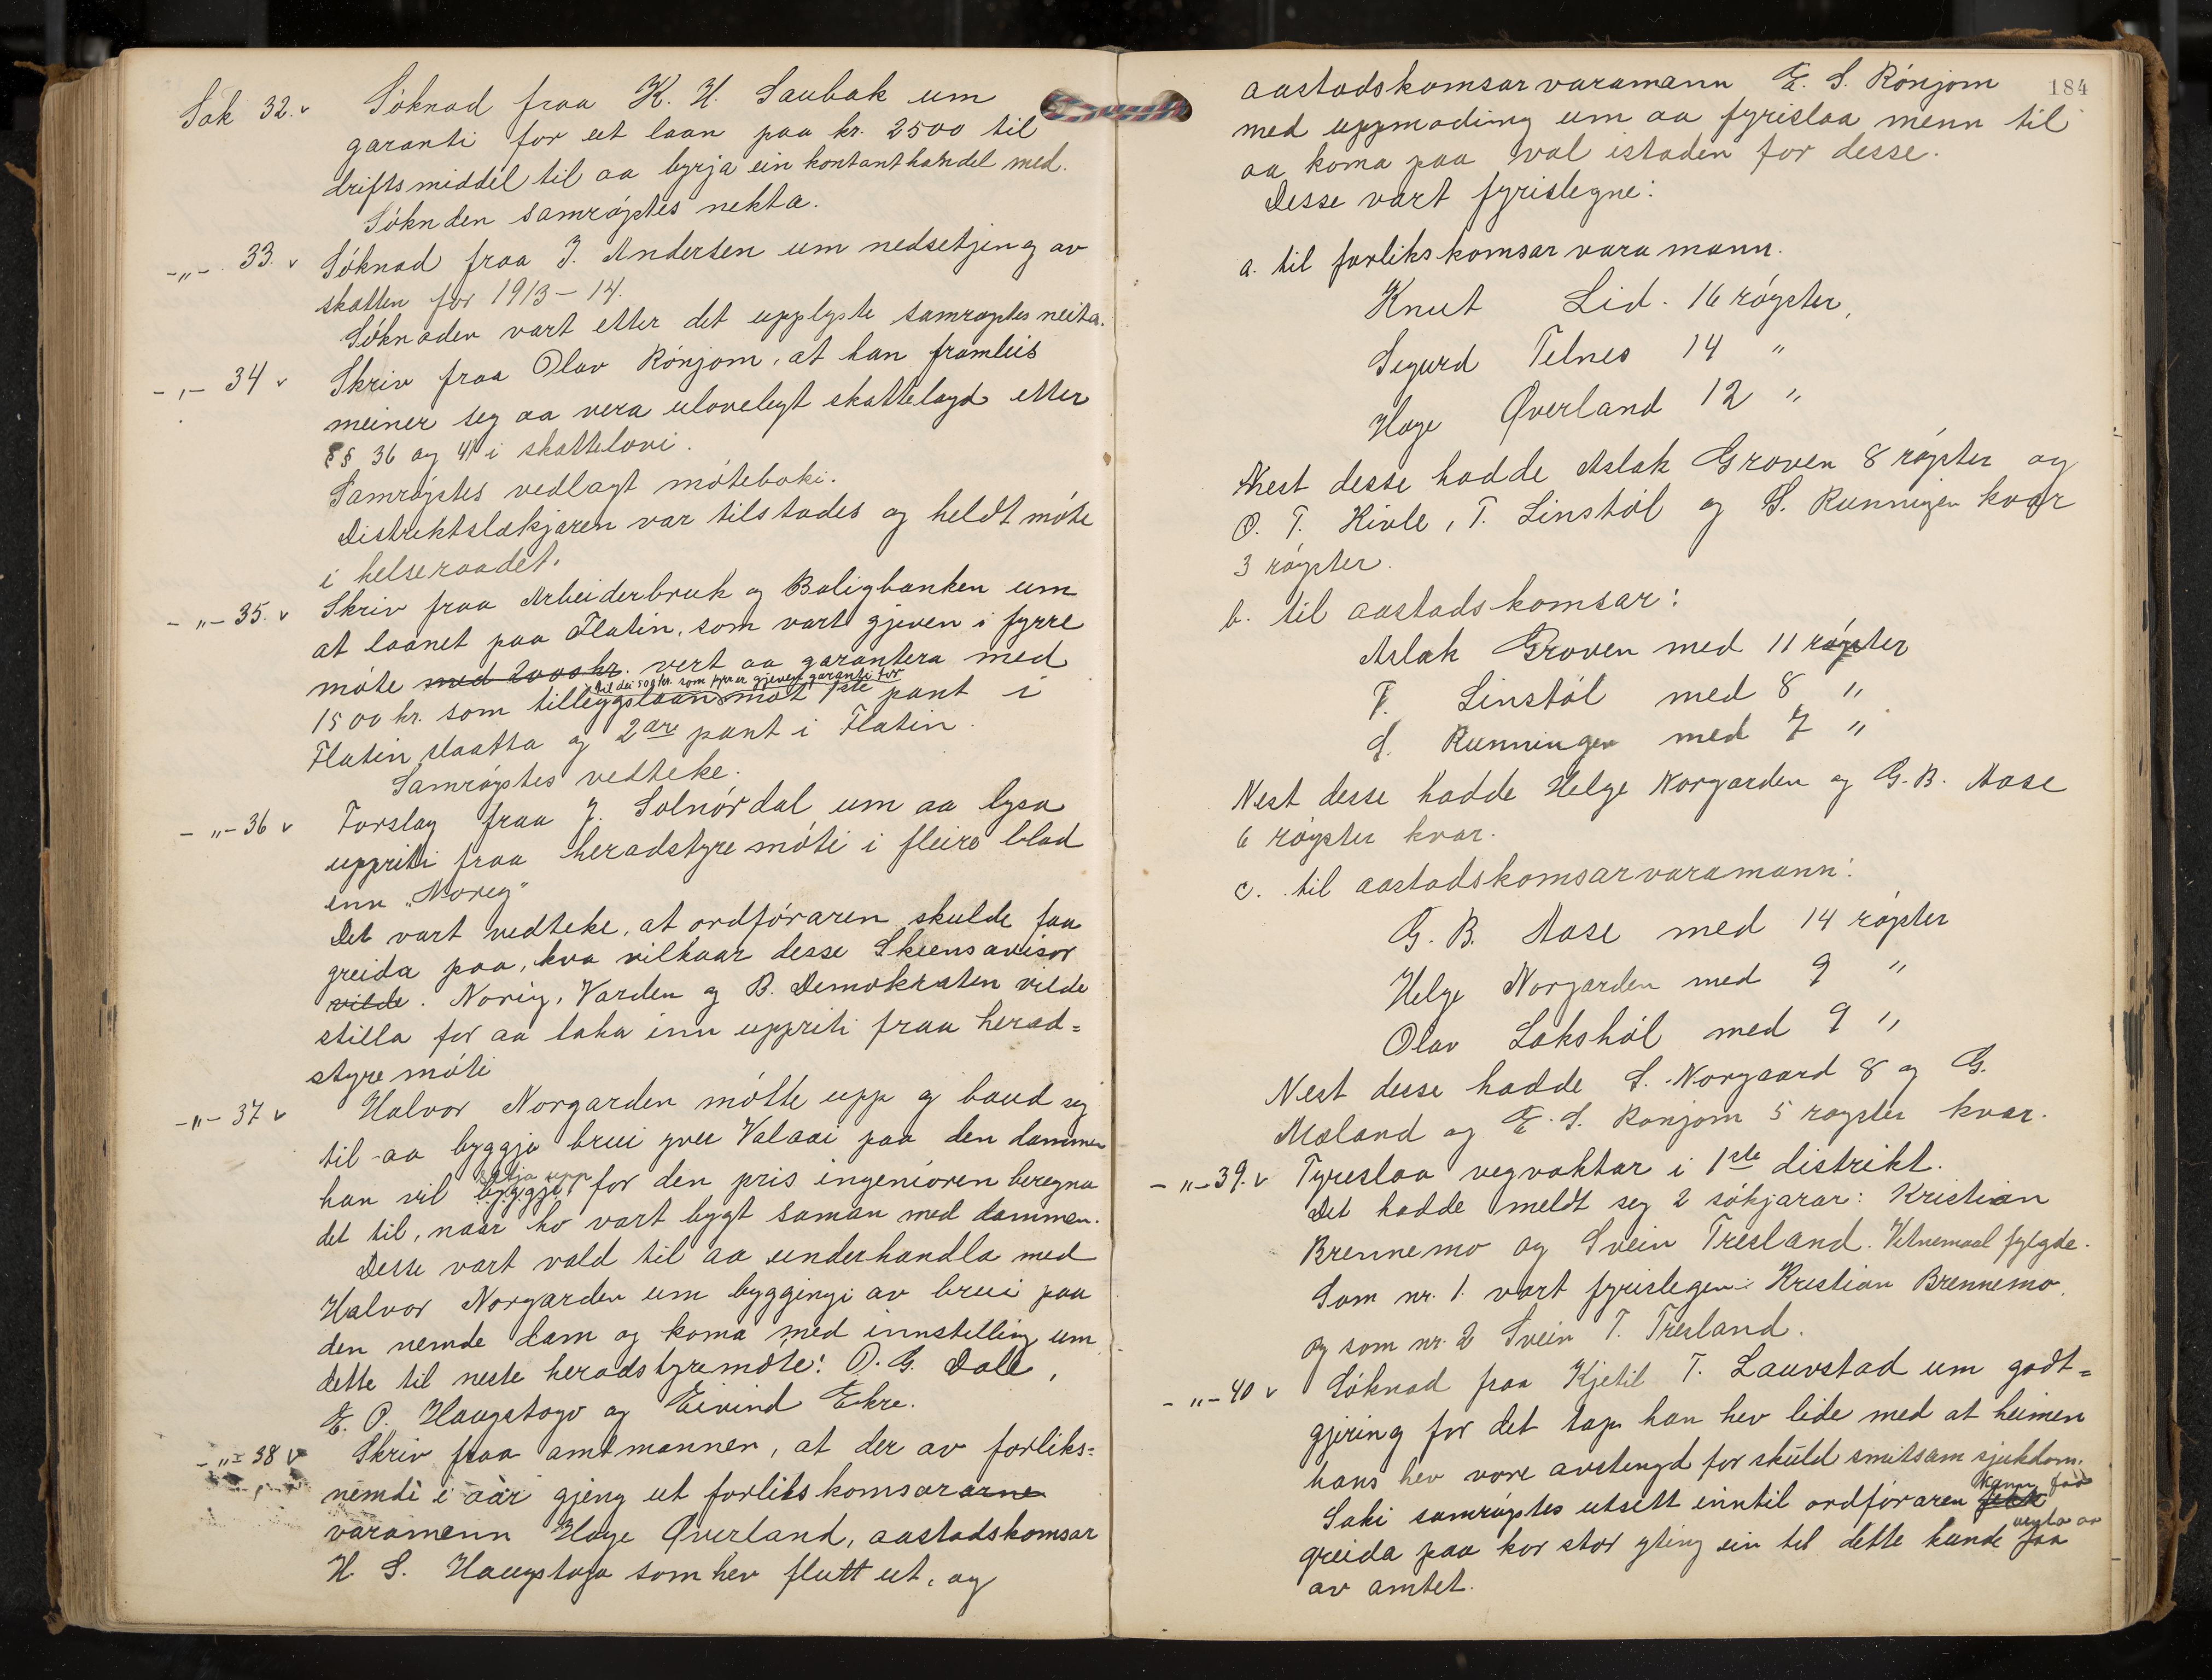 Sak 32. v Söknad fraa K. H. Saubak um
garanti for eit laan paa kr. 2500 til
driftsmiddel til aa byrja ein kontanthandel med.
Söknden samröystes nekta.
-„- 33. v Söknad fraa J. Andersen um nedsetjing av
skatten for 1913-14.
Söknaden vart etter det upplyste samröystes neita.
-„- 34 v Skriv fraa Olav Rönjom, at han framleis
meiner seg aa vera ulovelegt skattelagd etter
§§ 36 og 41 i skattelovi.
Samröystes vedlagt möteboki.
Distriktslækjaren var tilstades og heldt möte
i helseraadet.
-„- 35. v Skriv fraa Arbeiderbruk og Boligbanken um
at laanet paa Flatin, som vart gjeven i fyrre
möte med 2000 kr. vert aa garantera med
til dei 500 kr. som fyrr er gjeven garanti for
1500 kr. som tilleggslaan mot 1ste pant i
Flatin slaatta og 2are pant i Flatin.
Samröystes vedteke.
-„- 36 v Forslag fraa J. Solnördal um aa lysa
uppriti fraa heradstyremöti i fleire blad
enn „Noreg"
Det vart vedteke, at ordföraren skulde faa
greida paa, kva vilkaar desse Skiensavisor
vilde. Norig, Varden og B. Demokraten vilde
stilla for aa taka inn uppriti fraa herad=
styremöti
-„- 37 v Halvor Norgarden mötte upp og baud seg
til aa byggja brui yver Valaai paa den dammen
setja upp
han vil byggje for den pris ingeniören beregna
det til, naar ho vart bygt saman med dammen.
Desse vart vald til aa underhandla med
Halvor Norgarden um byggingi av brui paa
den nemde dam og koma med innstelling um
dette til neste heradstyremöte: O. G. Dale,
E. P. Haugstogo og Eivind Ekre.
-„- 38 v Skriv fraa amtmannen, at der av forliks=
nemdi i aar gjeng ut forlikskomsararne
varamenn Hage Øverland, aastadskomsar
H. S. Haugstoga som hev flutt ut, og
184
aastadskomsarvaramann E. S. Rönjom
med uppmoding um aa fyrislaa menn til
aa koma paa val istaden for desse.
Desse vart fyrislegne:
a. til forlikskomsarvaramann.
Knut Lid. 16 röyster,
Segurd Telnes 14 „
Hage Øverland 12 „
Nest desse hadde Aslak Groven 8 röyster og
O. T. Hivle, T. Linstöl og S. Runningen kvar
3 röyster.
b. til aastadskomsar:
Aslak Groven med 11 röyster
T. Linstöl med 8 „
S. Runningen med 7 „
Nest desse hadde Helge Norgarden og G. B. Aase
6 röyster kvar.
c. til aastadskomsarvaramann:
G. B. Aase med 14 röyster
Helge Norgarden med 9 „
Olav Lakshöl med 9 „
Nest desse hadde S. Norgaard 8 og G.
Mæland og E. S. Ronjom 5 royster kvar.
-„- 39. v Fyreslaa vegvaktar i 1ste distrikt.
Det hadde meldt seg 2 sökjarar: Kristian
Brennemo og Svein Tresland. Vitnemaal fylgde.
Som nr. 1. vart fyrislegen: Kristian Brennemo,
og som nr. 2 Svein T. Tresland.
-„- 40 v Söknad fraa Kjetil T. Lauvstad um godt=
gjering for det tap han hev lide med at heimen
hans hev vore avstengd for skuld smitsam sjukdom.
kann faa
Saki samröystes utsett inntil ordföraren fekk
greida paa kor stor yting ein til dette kunde faa
av amtet.